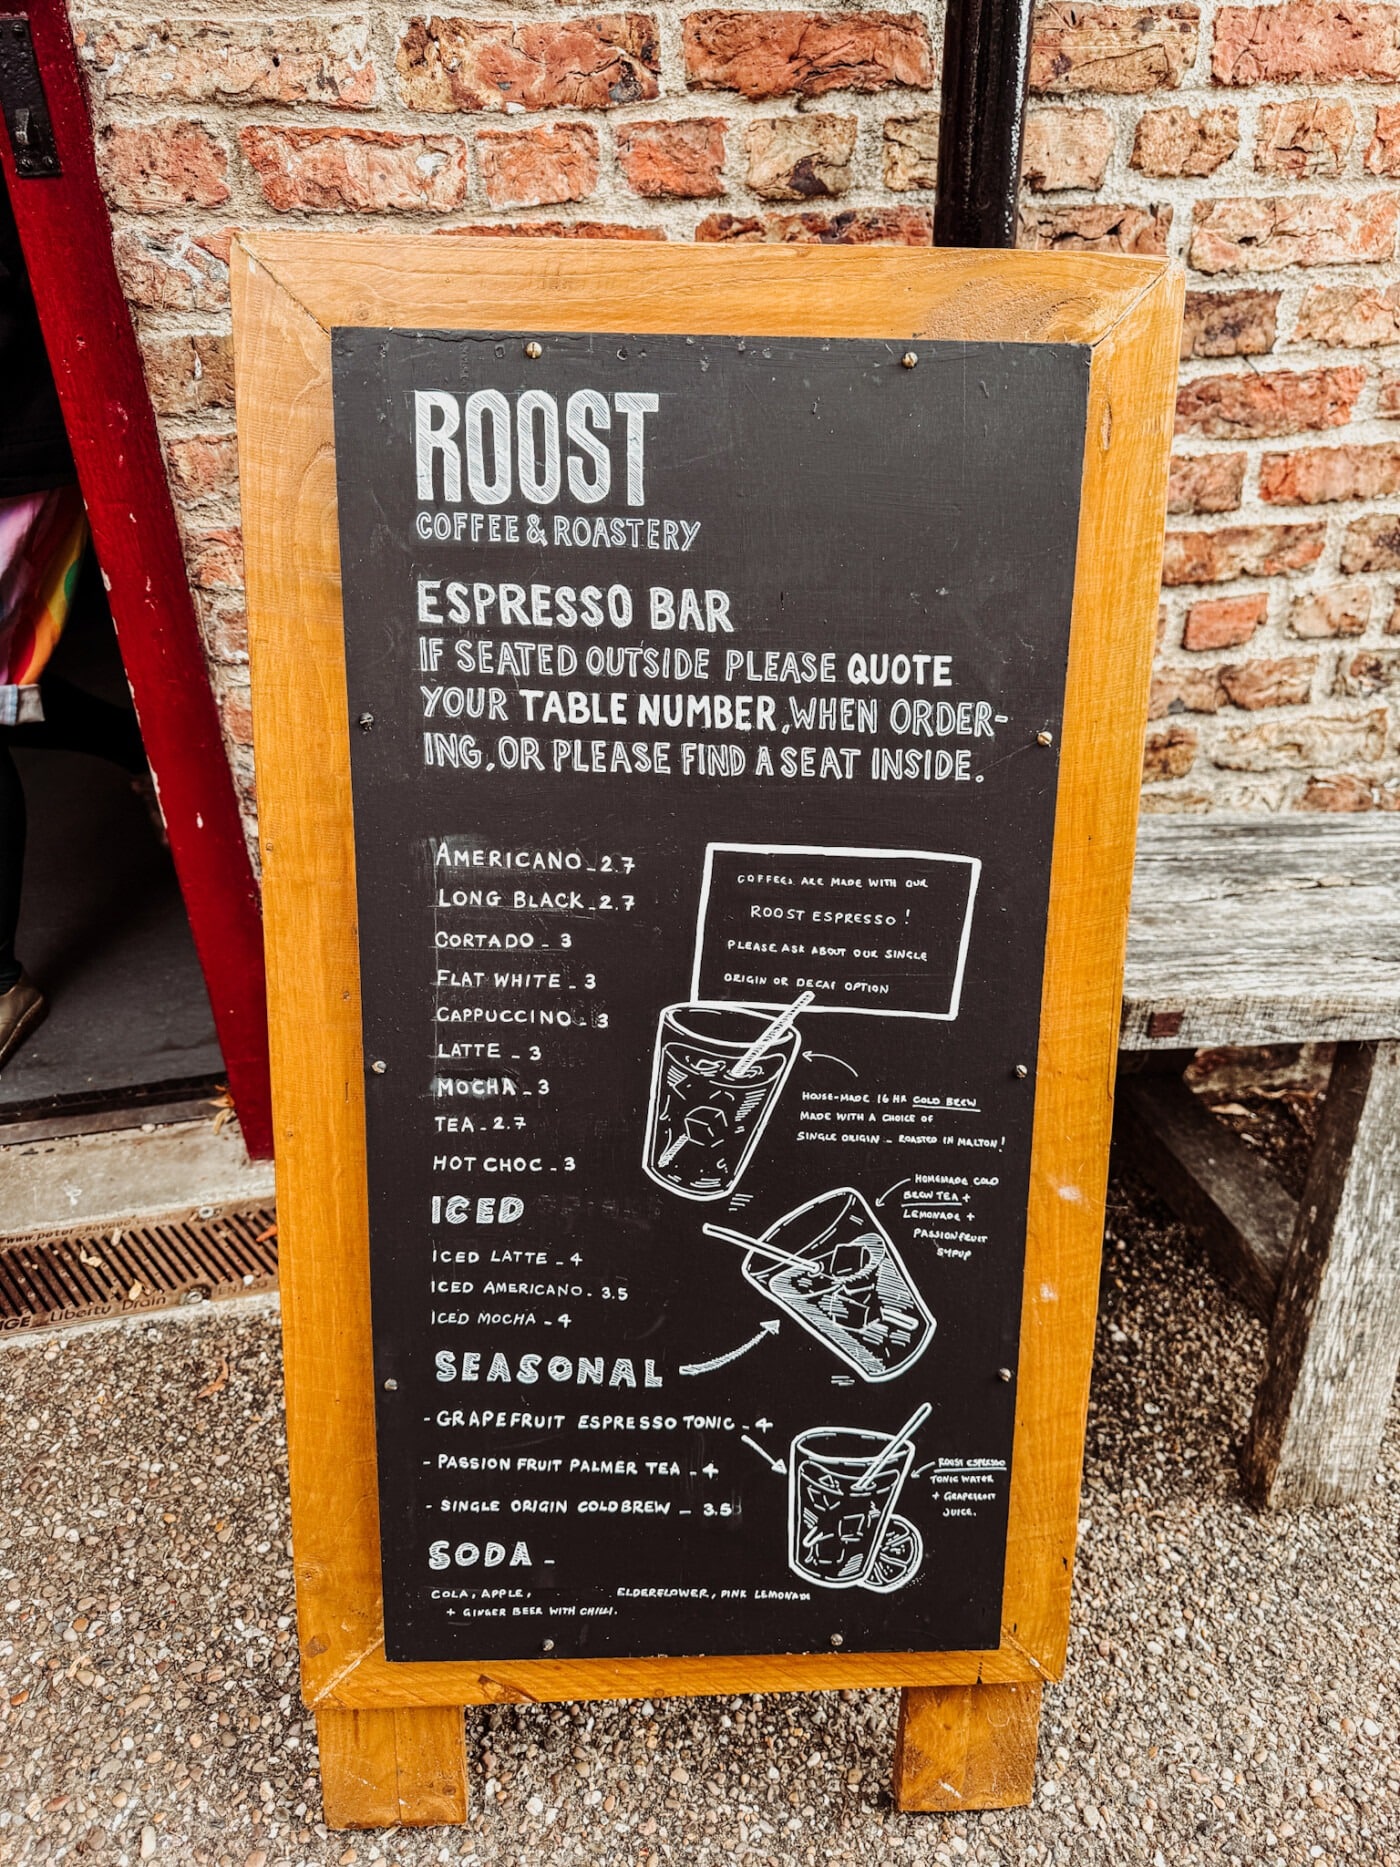 ROOST
COFFEE & ROASTERY
ESPRESSO BAR
IF SEATED OUTSIDE PLEASE QUOTE
YOUR TABLE NUMBER, WHEN ORDER-
ING, OR PLEASE FIND A SEAT INSIDE.
AMERICANO - 2.7
LONG BLACK - 2.7
CORTADO - 3
FLAT WHITE - 3
CAPPUCCINO - 3
LATTE - 3
MOCHA - 3
TEA - 2.7
HOT CHOC - 3
COFFEES ARE MADE WITH OUR
ROOST ESPRESSO!
PLEASE ASK ABOUT OUR SINGLE
ORIGIN OR DECAF OPTION
HOUSE-MADE 16 HR COLD BREW
MADE WITH A CHOICE OF
SINGLE ORIGIN - ROASTED IN MALTON!
ICED
ICED LATTE - 4
ICED AMERICANO - 3.5
ICED MOCHA - 4
HOMEMADE COLD
BREW TEA +
LEMONADE +
PASSIONFRUIT
SYPUP
SEASONAL
- GRAPEFRUIT ESPRESSO TONIC - 4
- PASSION FRUIT PALMER TEA - 4
- SINGLE ORIGIN COLDBREW - 3.5
ROOST ESPRESSO
TONIC WATER
+ GRAPEFRUIT
JUICE.
SODA -
COLA, APPLE, ELDERFLOWER, PINK LEMONADE
+ GINGER BEER WITH CHILLI.
Liberty Drain